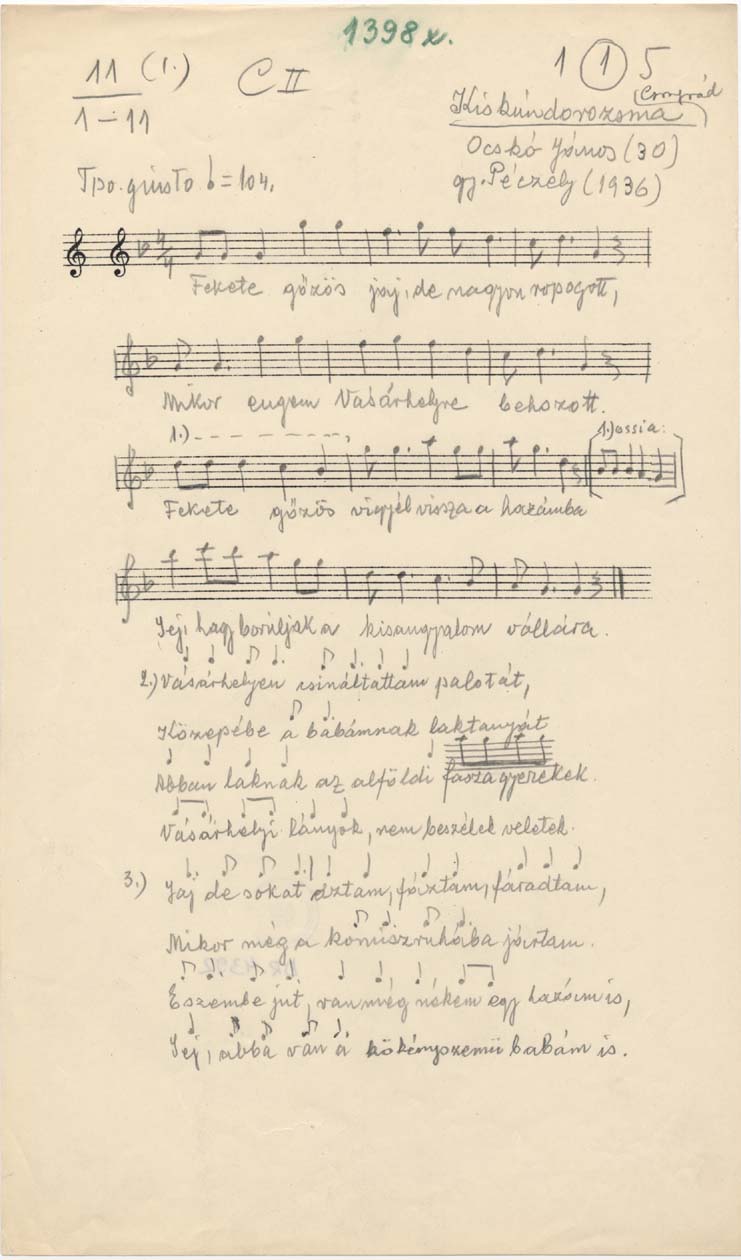 1398x.
11 (1.) C II 1 1 5
1-11 Csongrád
Kiskúndorozsma
Ocskó János (30)
gy. Péczely (1936)
Tpo. giusto = 104.
4/4
Fekete gőzös jaj, de nagyon ropogott,
Mikor engem Vasárhelyre behozott.
1.) 1.) ossia:
Fekete gőzös vigyél vissza a hazámba
Jej, hagy borúljak a kisangyalom vállára.
2.) Vásárhelyen csináltattam palotát,
Közepébe a babámnak laktanyát
Abban laknak az alföldi fasza gyerekek.
Vásárhelyi lányok, nem beszélek veletek.
3.) Jaj de sokat áztam, fáztam, fáradtam,
Mikor még a komiszruhába jártam.
Eszembe jút, van még nékem egy hazám is,
Jej, abba van a kökényszemü babám is.